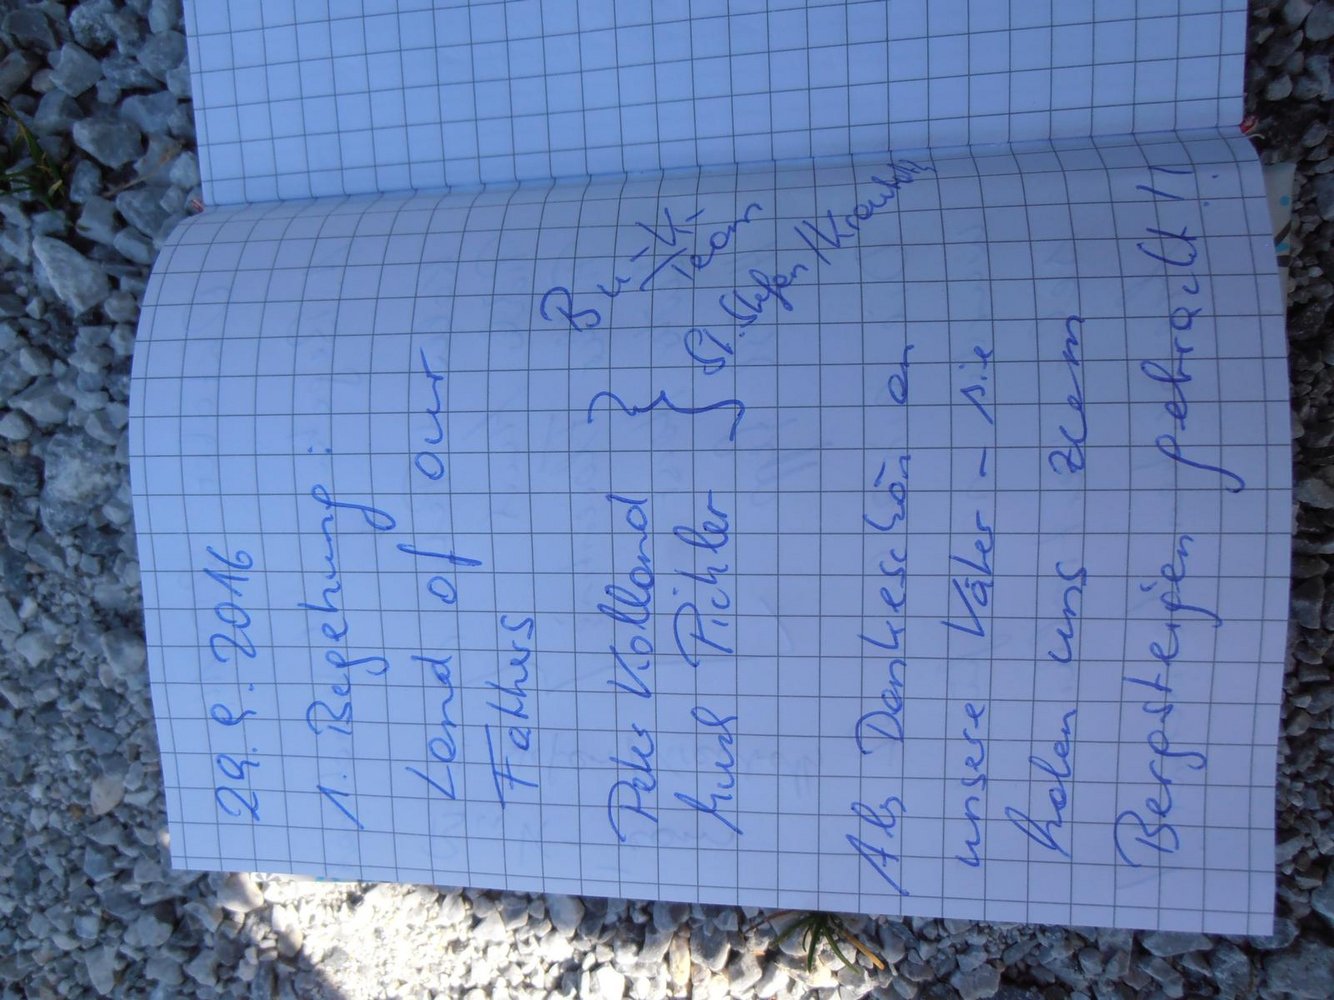 29.9.2016
1. Begehung:
Land of our
Fathers
Peter Kolland } Bu-Hi
Kurt Pichler } Team
St. Stefan / Kraubath
Als Dankeschön an
unsere Väter – sie
haben uns zum
Bergsteigen gebracht!!